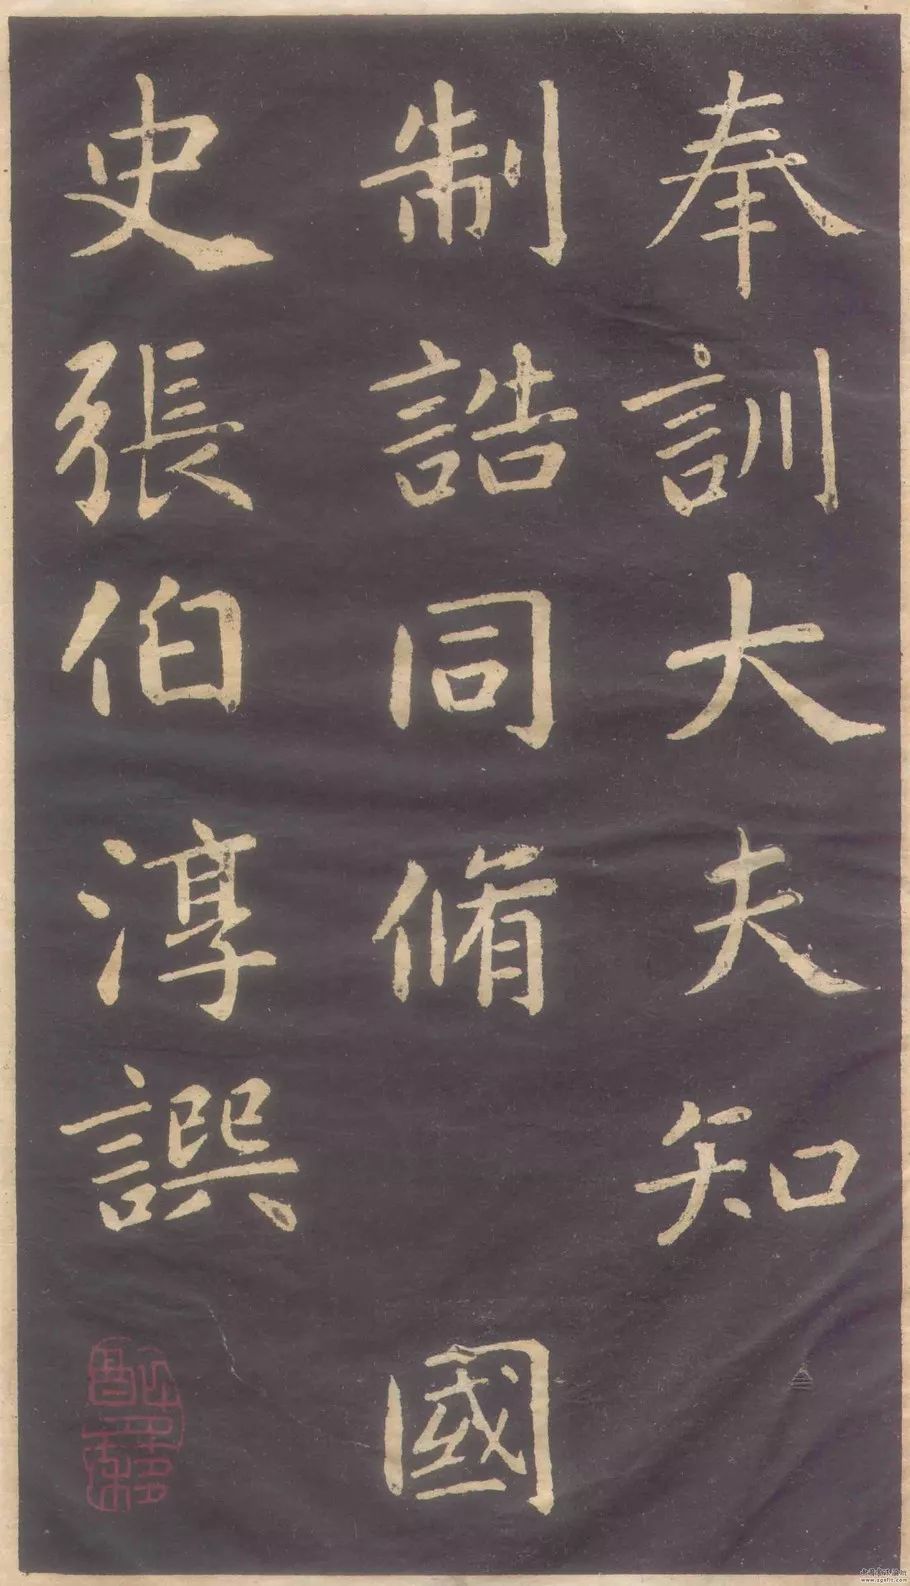 奉訓大夫知
制誥同脩 國
史張伯淳譔